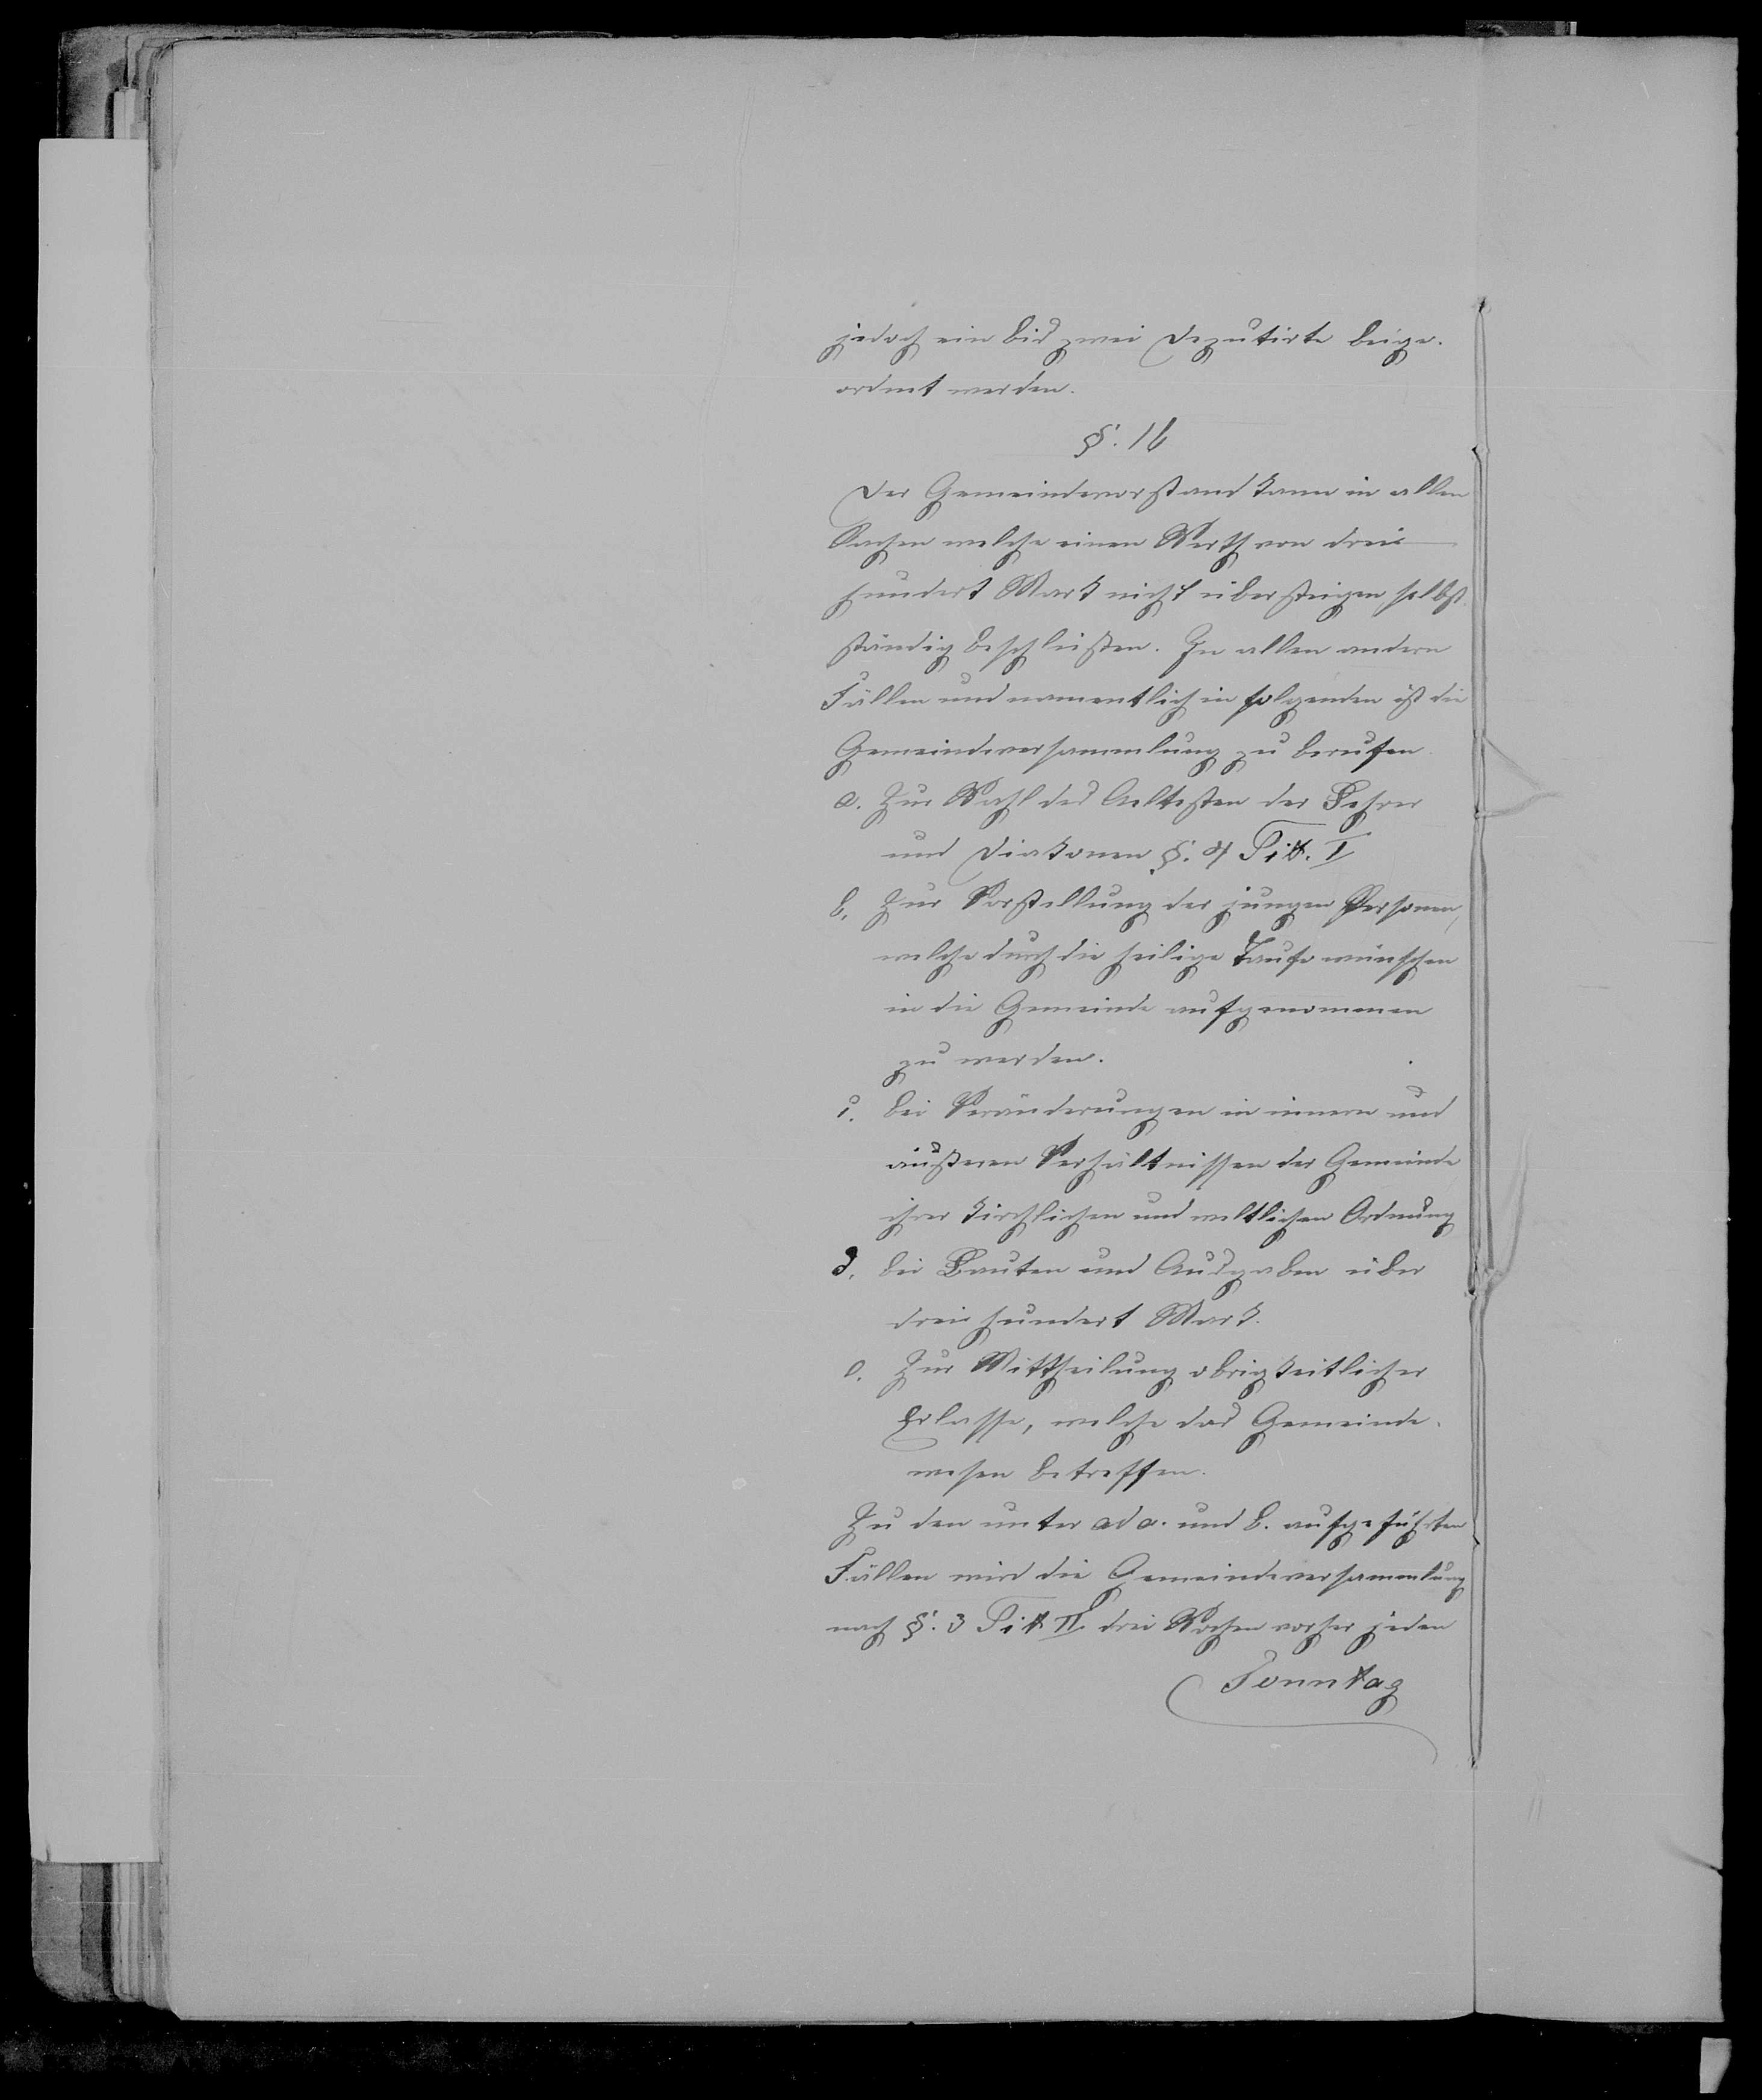 jedoch ein bis zwei Deputirte beige-
ordnet werden.
§. 16
Der Gemeindevorstand kann in allen
Sachen welche einen Werth von drei-
hundert Mark nicht übersteigen selbst-
ständig beschließen. In allen andern
Fällen und namentlich in folgenden ist die
Gemeindeversammlung zu berufen
a. Zur Wahl des Aeltesten der Lehrer
und Diakonen §. 4 Titt. I
b. Zur Vorstellung der jungen Personen,
welche durch die heilige Taufe wünschen
in die Gemeinde aufgenommen
zu werden.
c. bei Veränderungen in innern und
äußeren Verhältnissen der Gemeinde
ihrer kirchlichen und weltlichen Ordnung
d. bei Bauten und Ausgaben über
drei hundert Mark.
e. Zur Mittheilung obrigkeitlicher
Erlasse, welche das Gemeinde-
wesen betreffen.
Zu den unter ad a. und b. aufgeführten
Fällen wird die Gemeindeversammlung
nach §. 3 Titt II drei Wochen vorher jeden
Sonntag